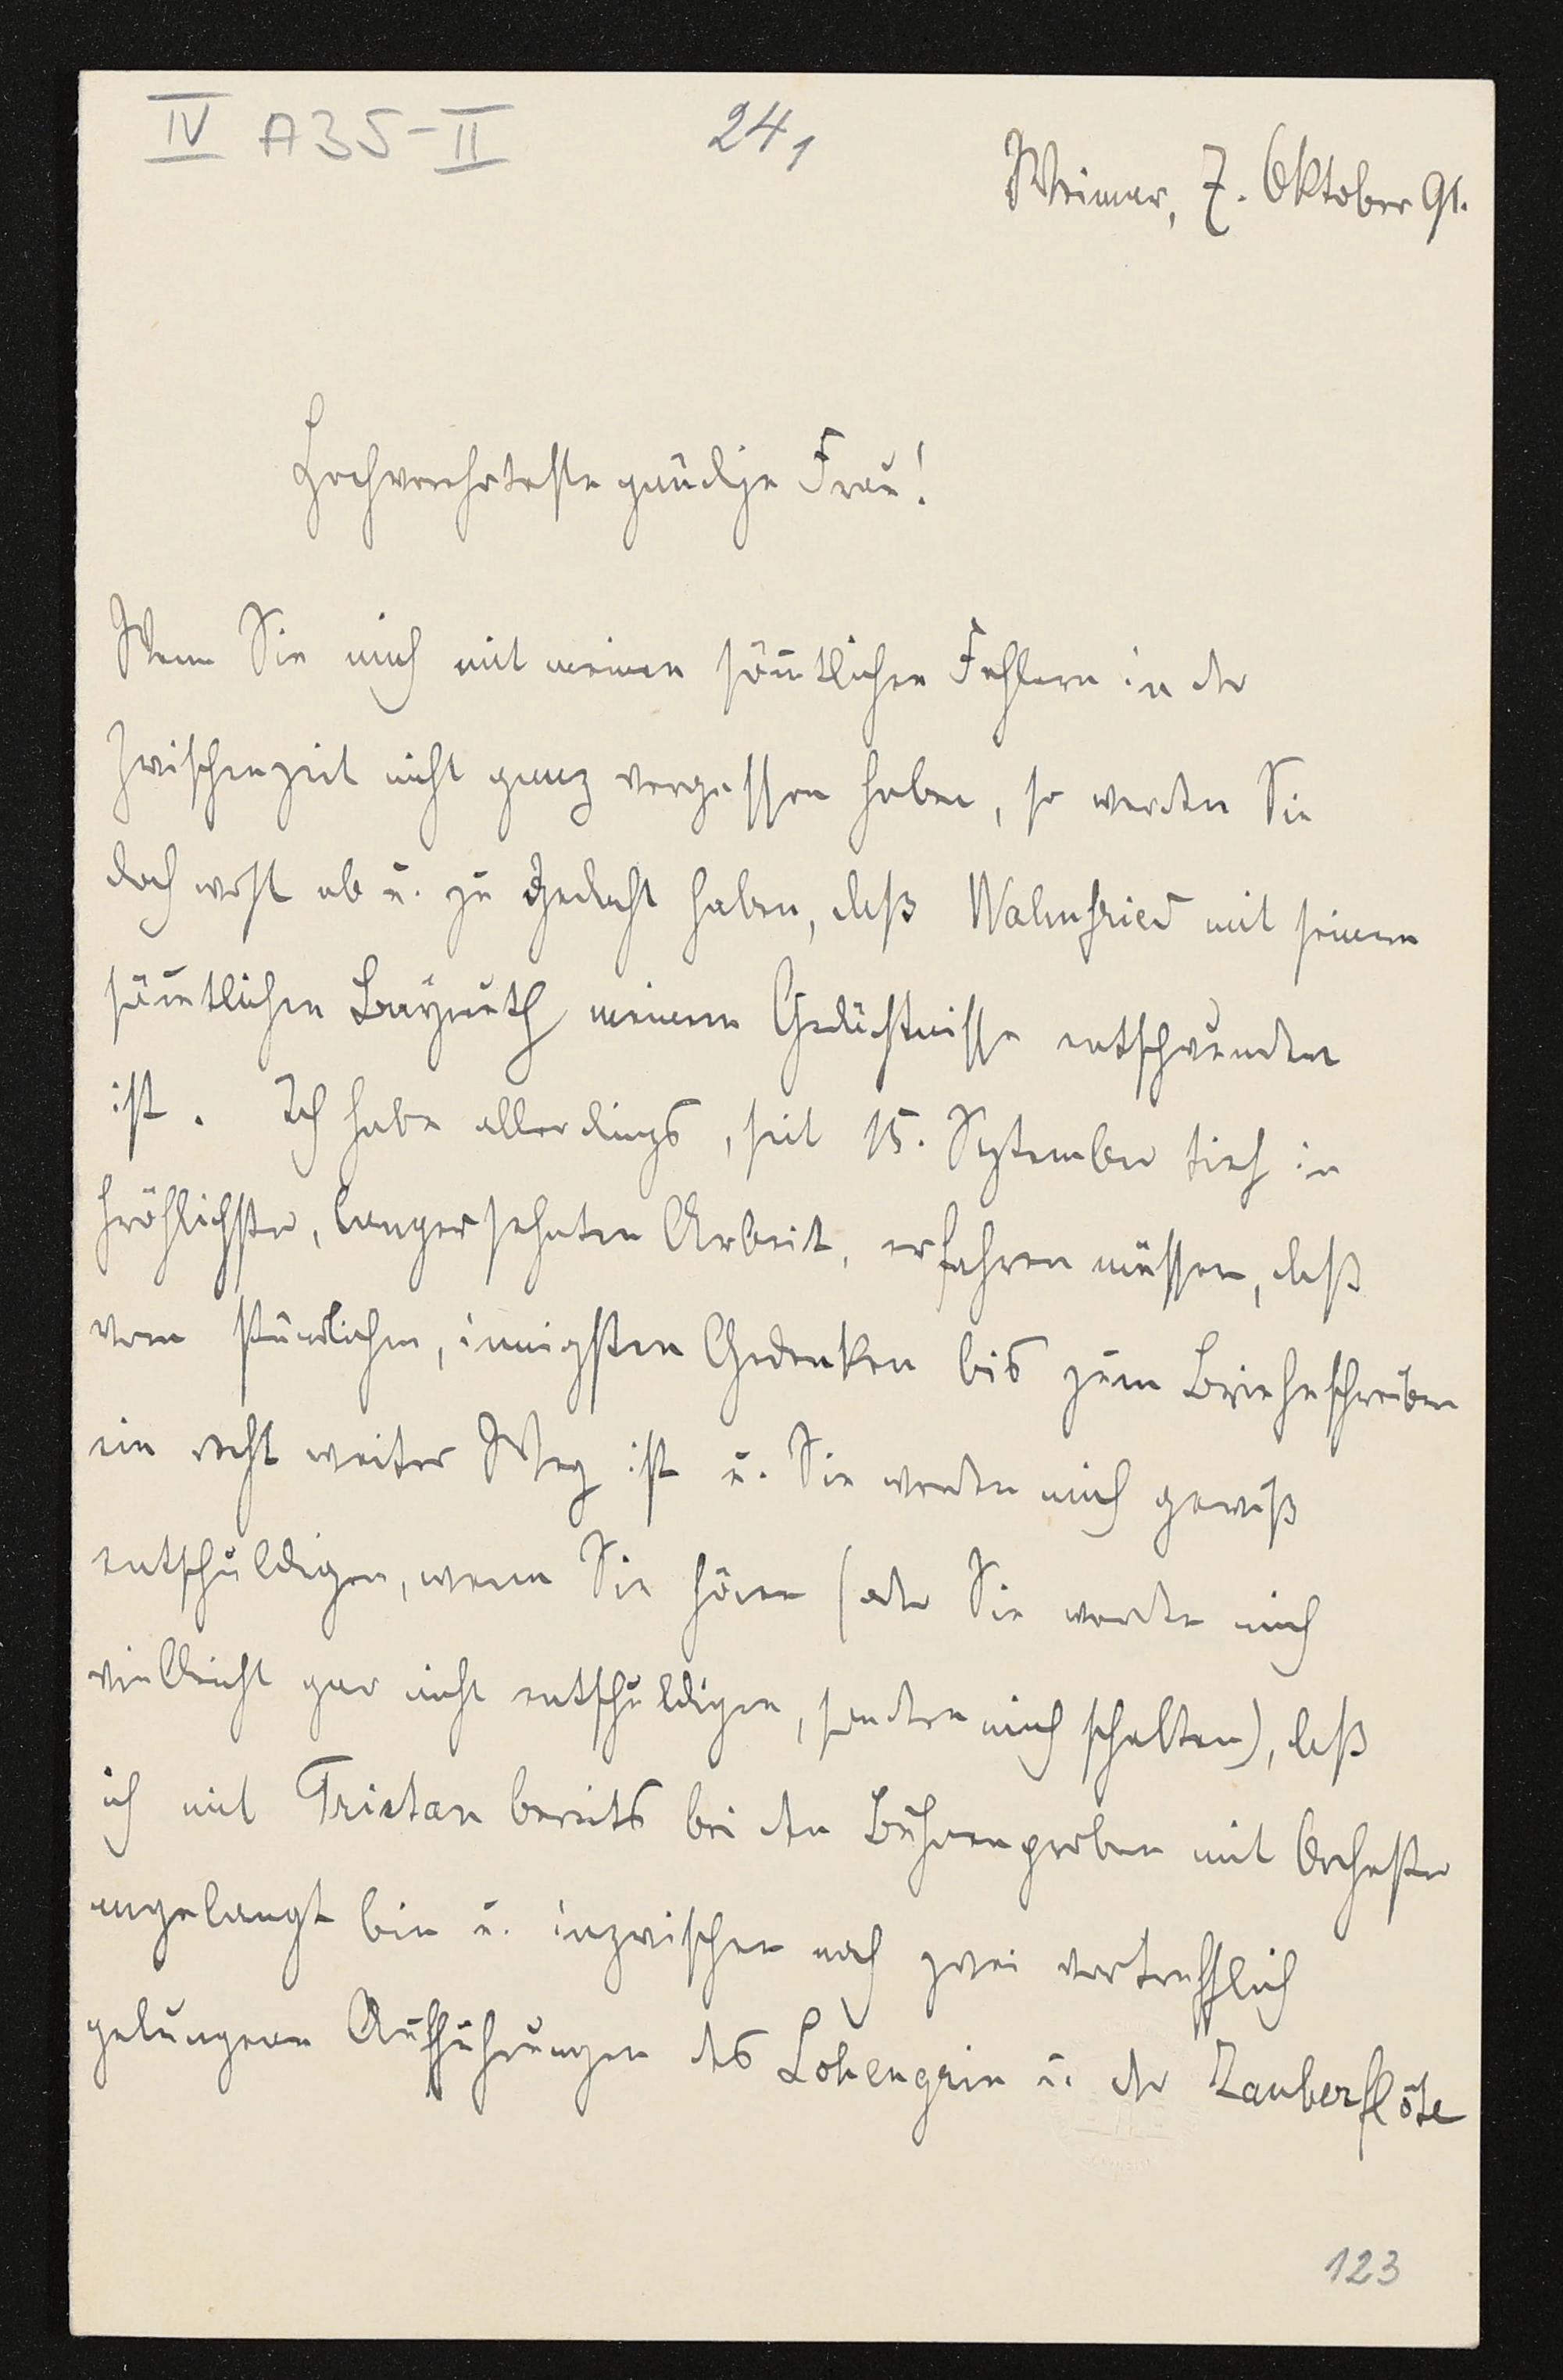 IV A35-II
24,1
Weimar, 7. Oktober 91.
Hochverehrteste gnädige Frau!
Wenn Sie mich mit meinen sämtlichen Fehlern in der
Zwischenzeit nicht ganz vergessen haben, so werden Sie
doch wohl ab u. zu gedacht haben, daß Wahnfried mit seinem
sämtlichen Bayreuth meinem Gedächtnisse entschwunden
ist. Ich habe allerdings, seit 15. September tief in
fröhlichster, langersehnter Arbeit, erfahren müssen, daß
vom stündlichen, innigsten Gedenken bis zum Briefeschreiben
ein recht weiter Weg ist u. Sie werden mich gewiß
entschuldigen, wenn Sie hören (oder Sie werden mich
vielleicht gar nicht entschuldigen, sondern mich schelten), daß
ich mit Tristan bereits bei den Bühnenproben mit Orchester
angelangt bin u. inzwischen noch zwei vortrefflich
gelungene Aufführungen des Lohengrin u. der Zauberflöte
123